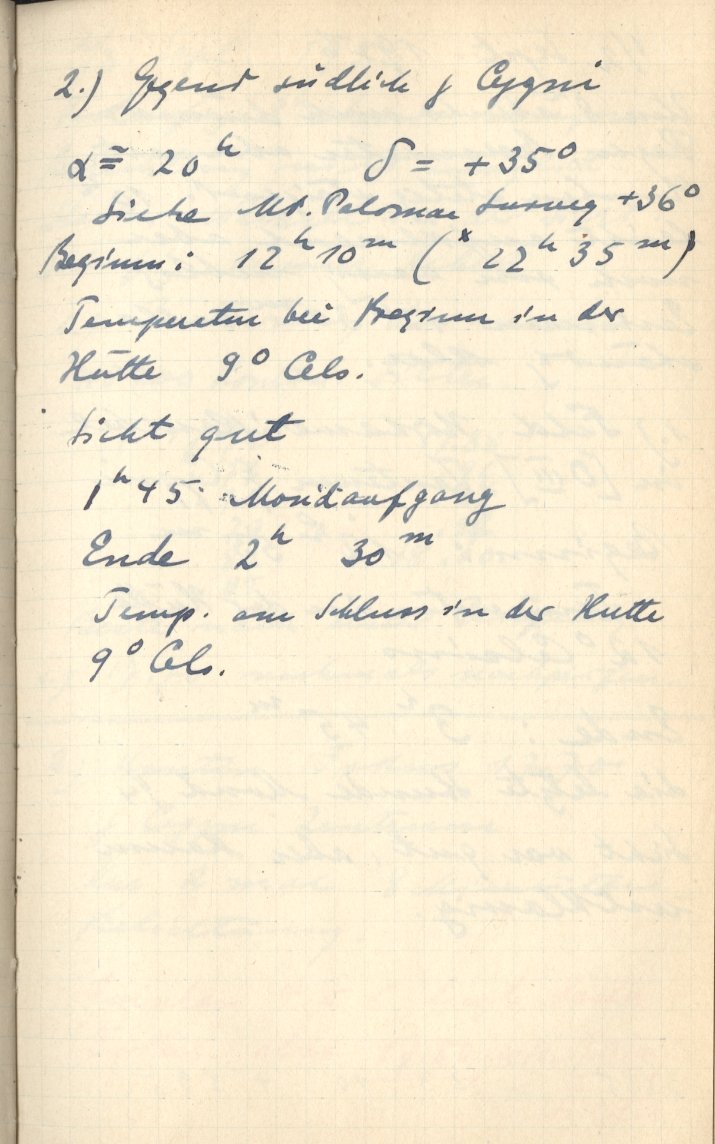 2.) Gegend südlich γ Cygni
α ≅ 20ʰ δ = +35°
Siehe Mt. Palomar Survey +36°
Beginn: 12ʰ 10ᵐ (ˣ 22ʰ 35ᵐ)
Temperatur bei Beginn in der
Hütte 9° Cels.
Sicht gut
1ʰ 45 Mondaufgang
Ende 2ʰ 30ᵐ
Temp. am Schluss in der Hütte
9° Cels.